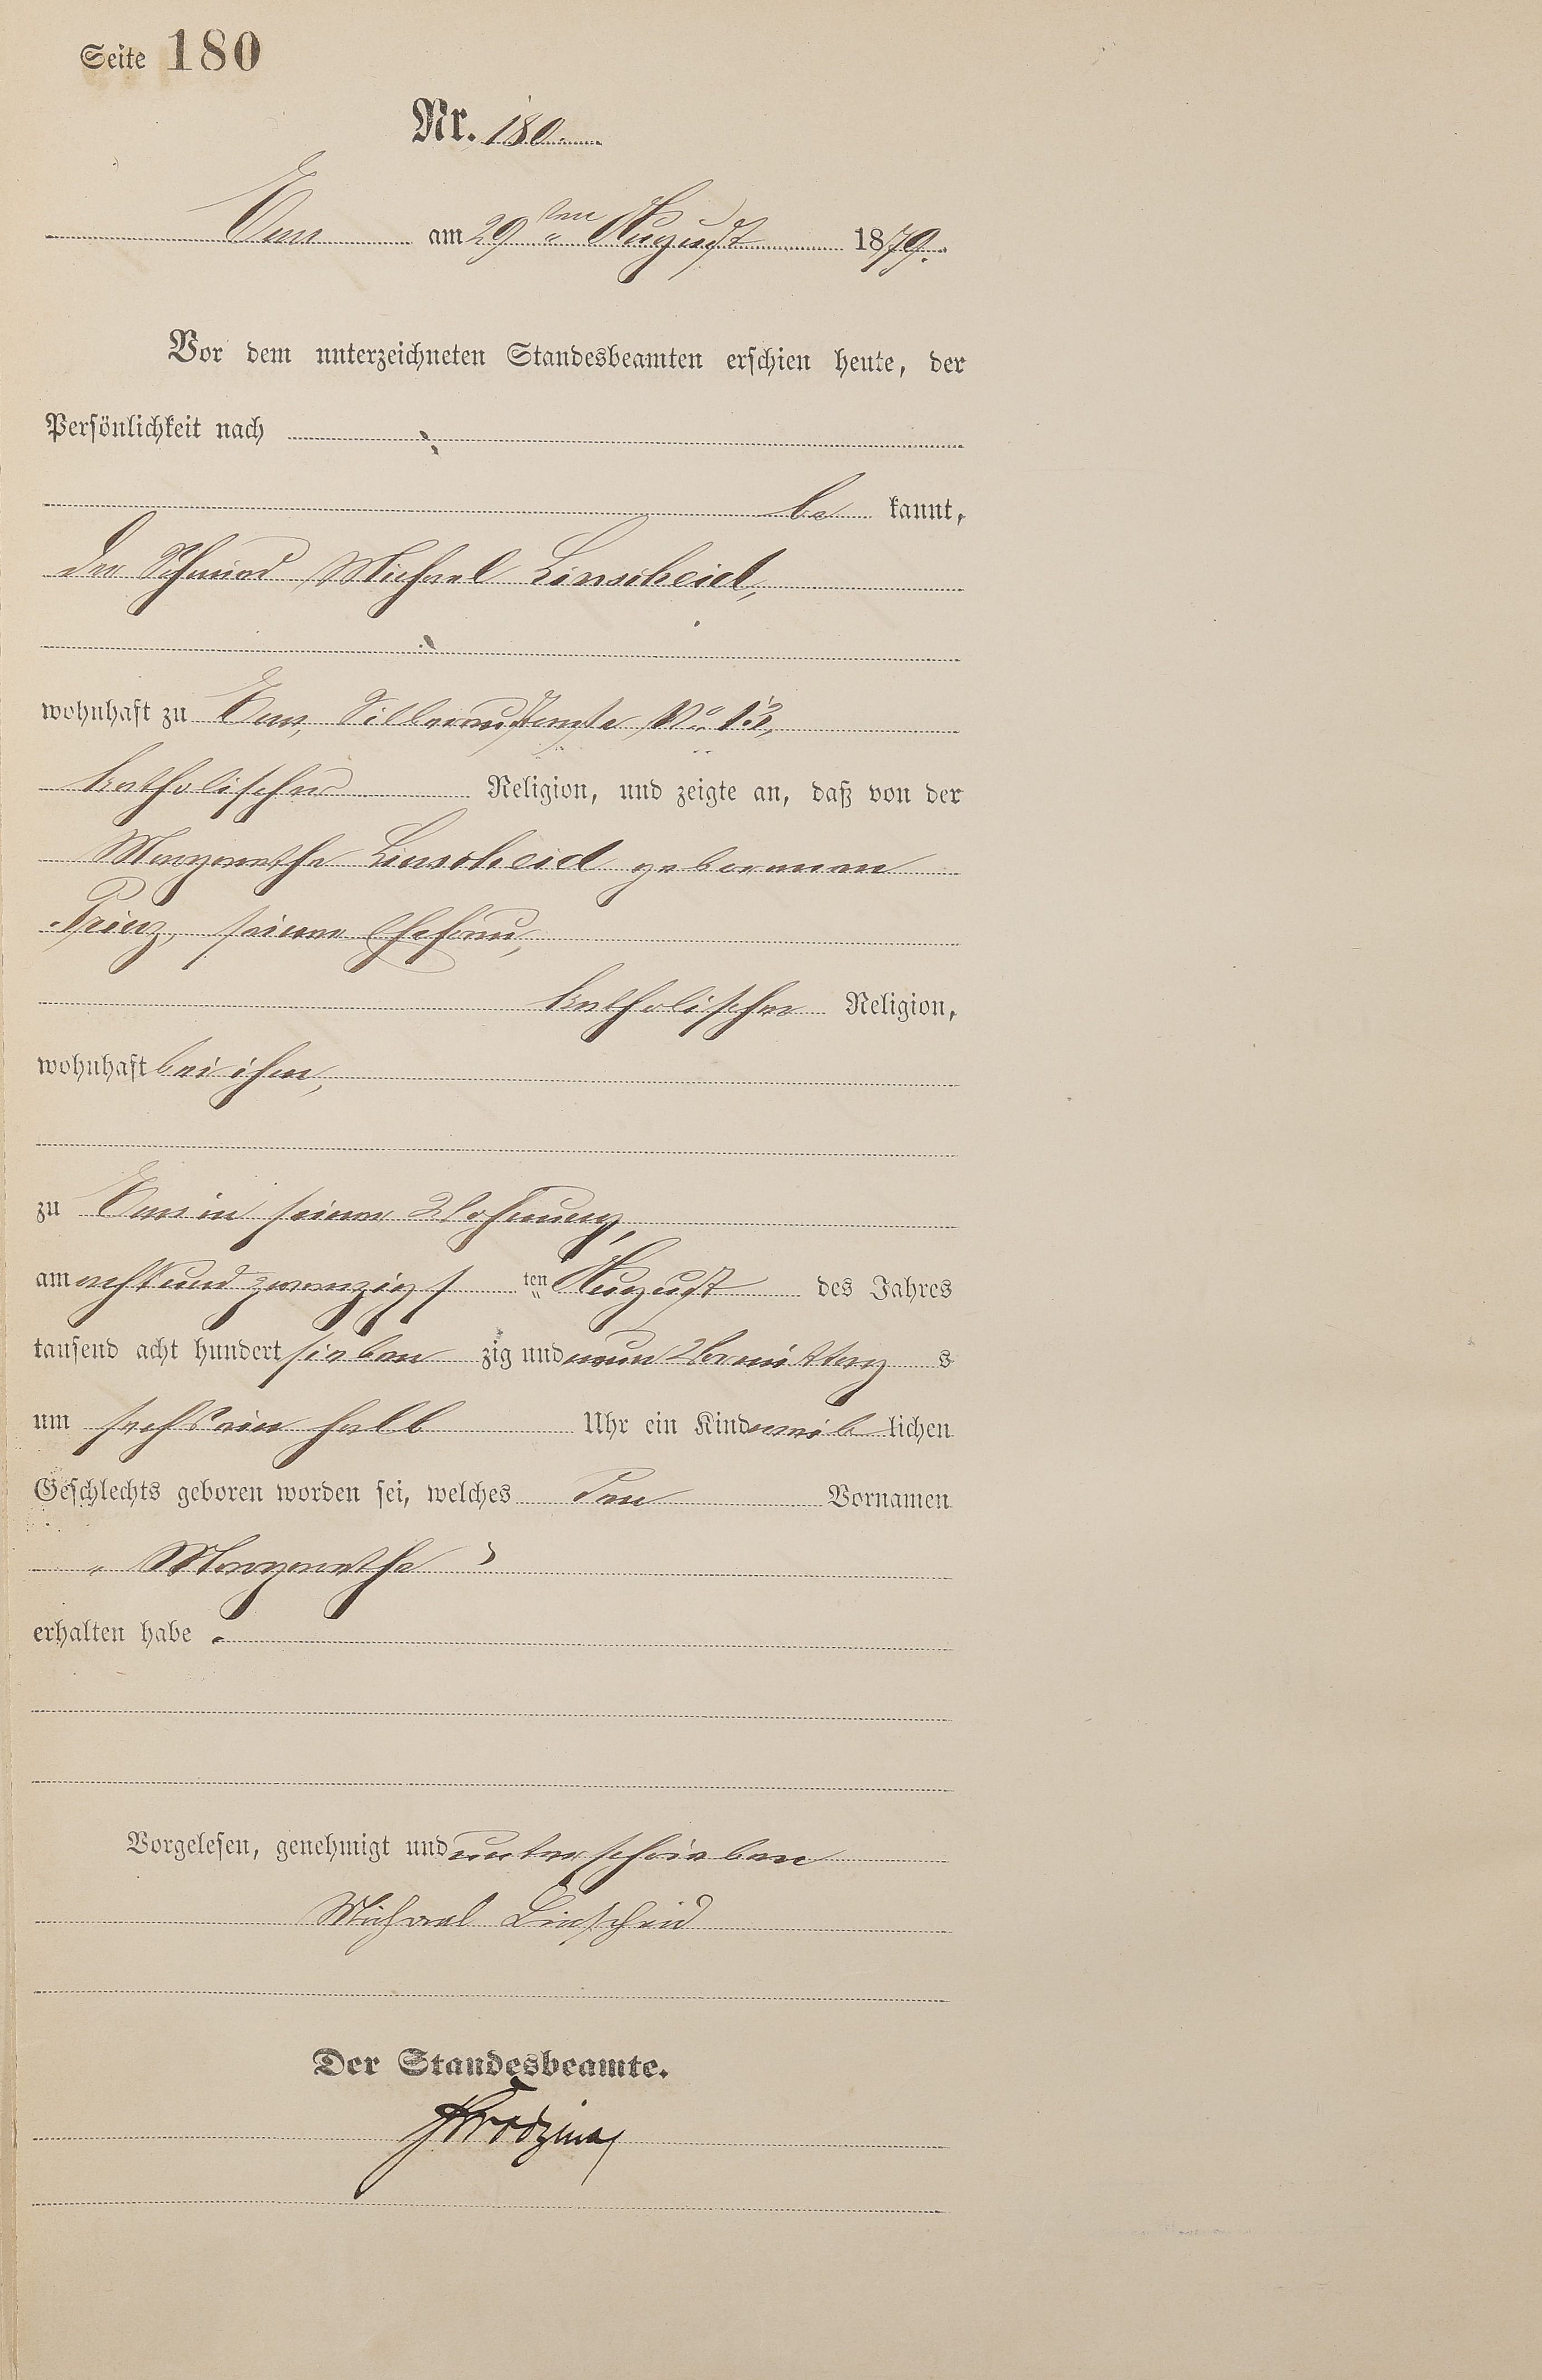 Seite 180
Nr. 180.
Ems am 29ten August 1879.
Vor dem unterzeichneten Standesbeamten erschien heute, der
Persönlichkeit nach
be kannt,
der Schmied Michael Linscheid,
wohnhaft zu Ems, Silberaustraße No 13,
katholischer Religion, und zeigte an, daß von der
Margarethe Linscheid geborenen
Prinz, seiner Ehefrau,
katholischer Religion,
wohnhaft bei ihm,
zu Ems in seiner Wohnung,
am achtundzwanzigsten August des Jahres
tausend acht hundert siebenzig und neun Vormittags
um sechs ein halb Uhr ein Kind weiblichen
Geschlechts geboren worden sei, welches den Vornamen
„Margarethe“
erhalten habe.
Vorgelesen, genehmigt und unterschrieben
Michael Linscheid
Der Standesbeamte.